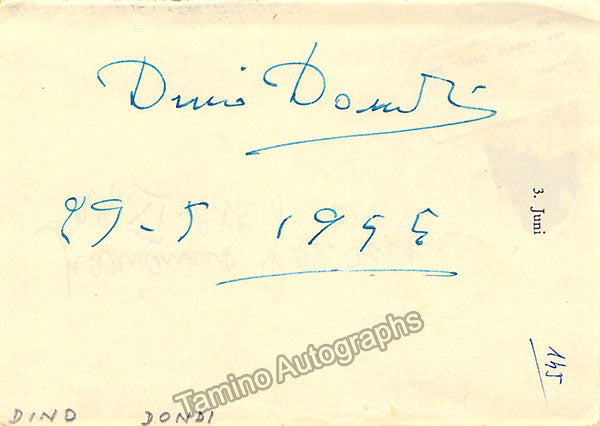 Dino Dondi
29-5 1955
3. Juni
145
Tamino Autographs
DINO DONDI